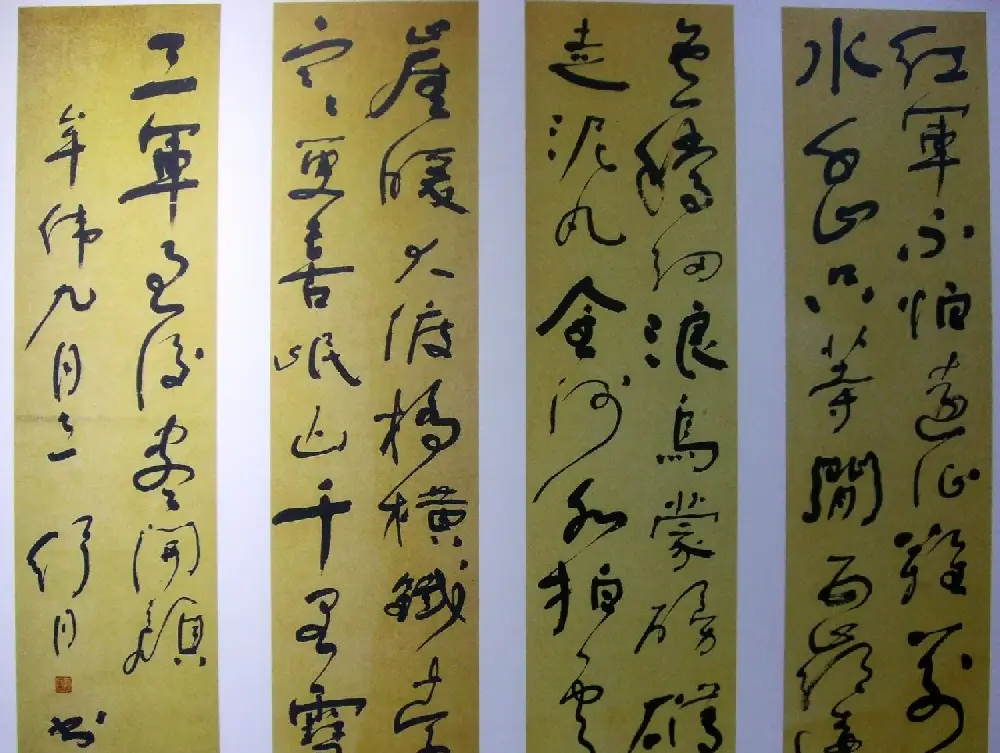 紅軍不怕遠征難萬
水千山只等閒五嶺逶
迤騰細浪烏蒙磅礴
走泥丸金沙水拍雲
崖暖大渡橋橫鐵索
寒更喜岷山千里雪
三軍過後盡開顏
九月 書